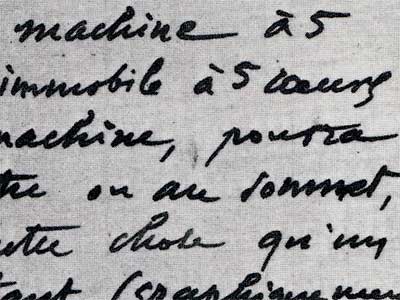 machine à 5
immobile à 5 cœurs
machine, pourra
tre ou au sommet,
utre chose qu'un
tant (graphiquemen